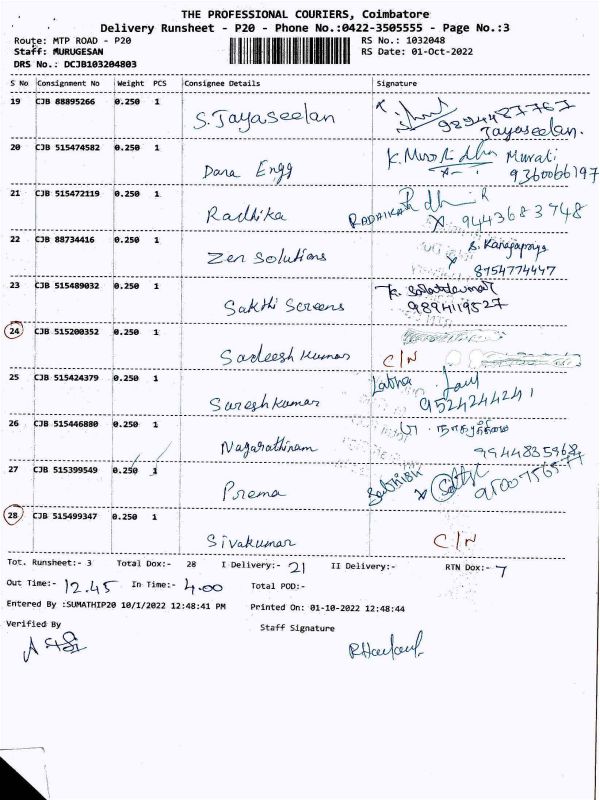 THE PROFESSIONAL COURIERS, Coimbatore
Delivery Runsheet - P20 - Phone No.:0422-3505555 - Page No.:3
Route: MTP ROAD - P20 RS No.: 1032048
Staff: MURUGESAN RS Date: 01-Oct-2022
DRS No.: DCJB103204803
S No Consignment No Weight PCS Consignee Details Signature
19 CJB 88895266 0.250 1 S. Jayaseelan 9894427767
Jayaseelan.
20 CJB 515474582 0.250 1 Dana Engg K. Muralidhan Murali
9360066197
21 CJB 515472119 0.250 1 Radhika RADHIKA 9443683748
22 CJB 88734416 0.250 1 Zen Solutions S. Kanagapriya
8754774447
23 CJB 515489032 0.250 1 Sakthi Screens
9894119527
24 CJB 515200352 0.250 1 Sadeesh kumar C/N
25 CJB 515424379 0.250 1 Suresh kumar Labha
9524244241
26 CJB 515446880 0.250 1 Nagarathinam
9944835968
27 CJB 515399549 0.250 1 Prema Sathish
28 CJB 515499347 0.250 1 Sivakumar C/N
Tot. Runsheet:- 3 Total Dox:- 28 I Delivery:- 21 II Delivery:- RTN Dox:- 7
Out Time:- 12.45 In Time:- 4.00 Total POD:-
Entered By :SUMATHIP20 10/1/2022 12:48:41 PM Printed On: 01-10-2022 12:48:44
Verified By Staff Signature